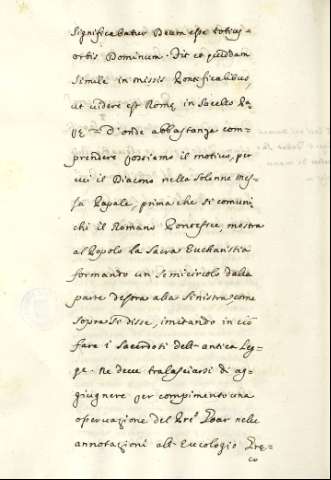 significabatur Deum esse totius
orbis Dominum. Fit et quiddam
simile in missis Pontificalibus,
ut videre est Romę in sacello Pa-
pę = D'onde abbastanza com-
prendere possiamo il motivo, per
cui il Diacono nella solenne mes-
sa Papale, prima che si comuni-
chi il Romano Pontefice, mostra
al Popolo la Sacra Eucharistia
formando un semicircolo dalla
parte destra alla sinistra, come
sopra si disse, imitando in ciò
fare i Sacerdoti dell'antica Leg-
ge. Ne deve tralasciarsi di ag-
giugnere per compimento una
osservazione del Pre. Goar nelle
annotazioni all'Eucologio Grę-
co